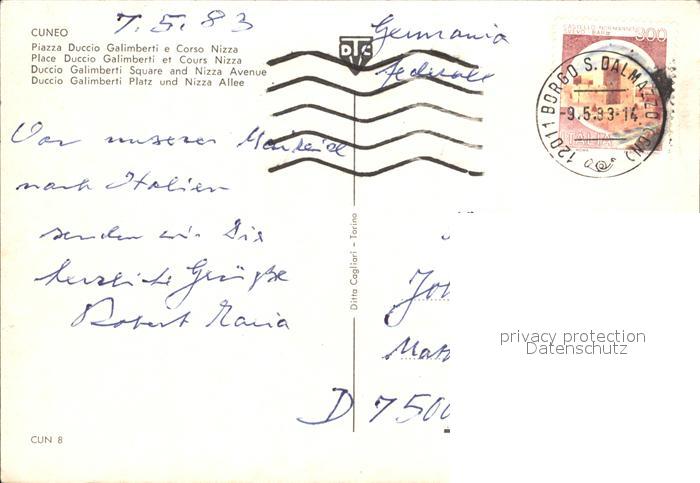 7.5.83
CUNEO
Piazza Duccio Galimberti e Corso Nizza
Place Duccio Galimberti et Cours Nizza
Duccio Galimberti Square and Nizza Avenue
Duccio Galimberti Platz und Nizza Allee
DTC
Germania
federale
CASTELLO NORMANNO SVEVO BARI
300
ITALIA
12011 BORGO S. DALMAZZO (CN)
-9.5.83-14
Von unserer
nach Italien
senden wir Die
herzliche Grüße
Robert Maria
Ditta Cagliari - Torino
Joh
Mat
D 7500
privacy protection
Datenschutz
CUN 8